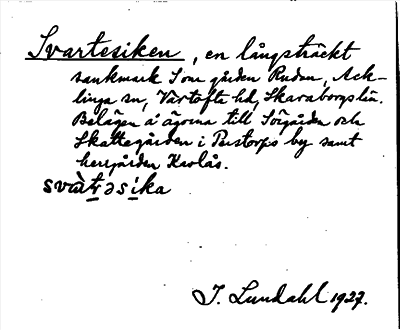 Svartesiken, en långsträckt
sankmark S om gården Rudan, Ack-
linga sn, Vartofta hd, Skaraborgs län.
Belägen å ägorna till Sörgården och
Skattegården i Perstorps by samt
herrgården Karlås.
svàt̲rəsi̲ka
J. Lundahl 1927.